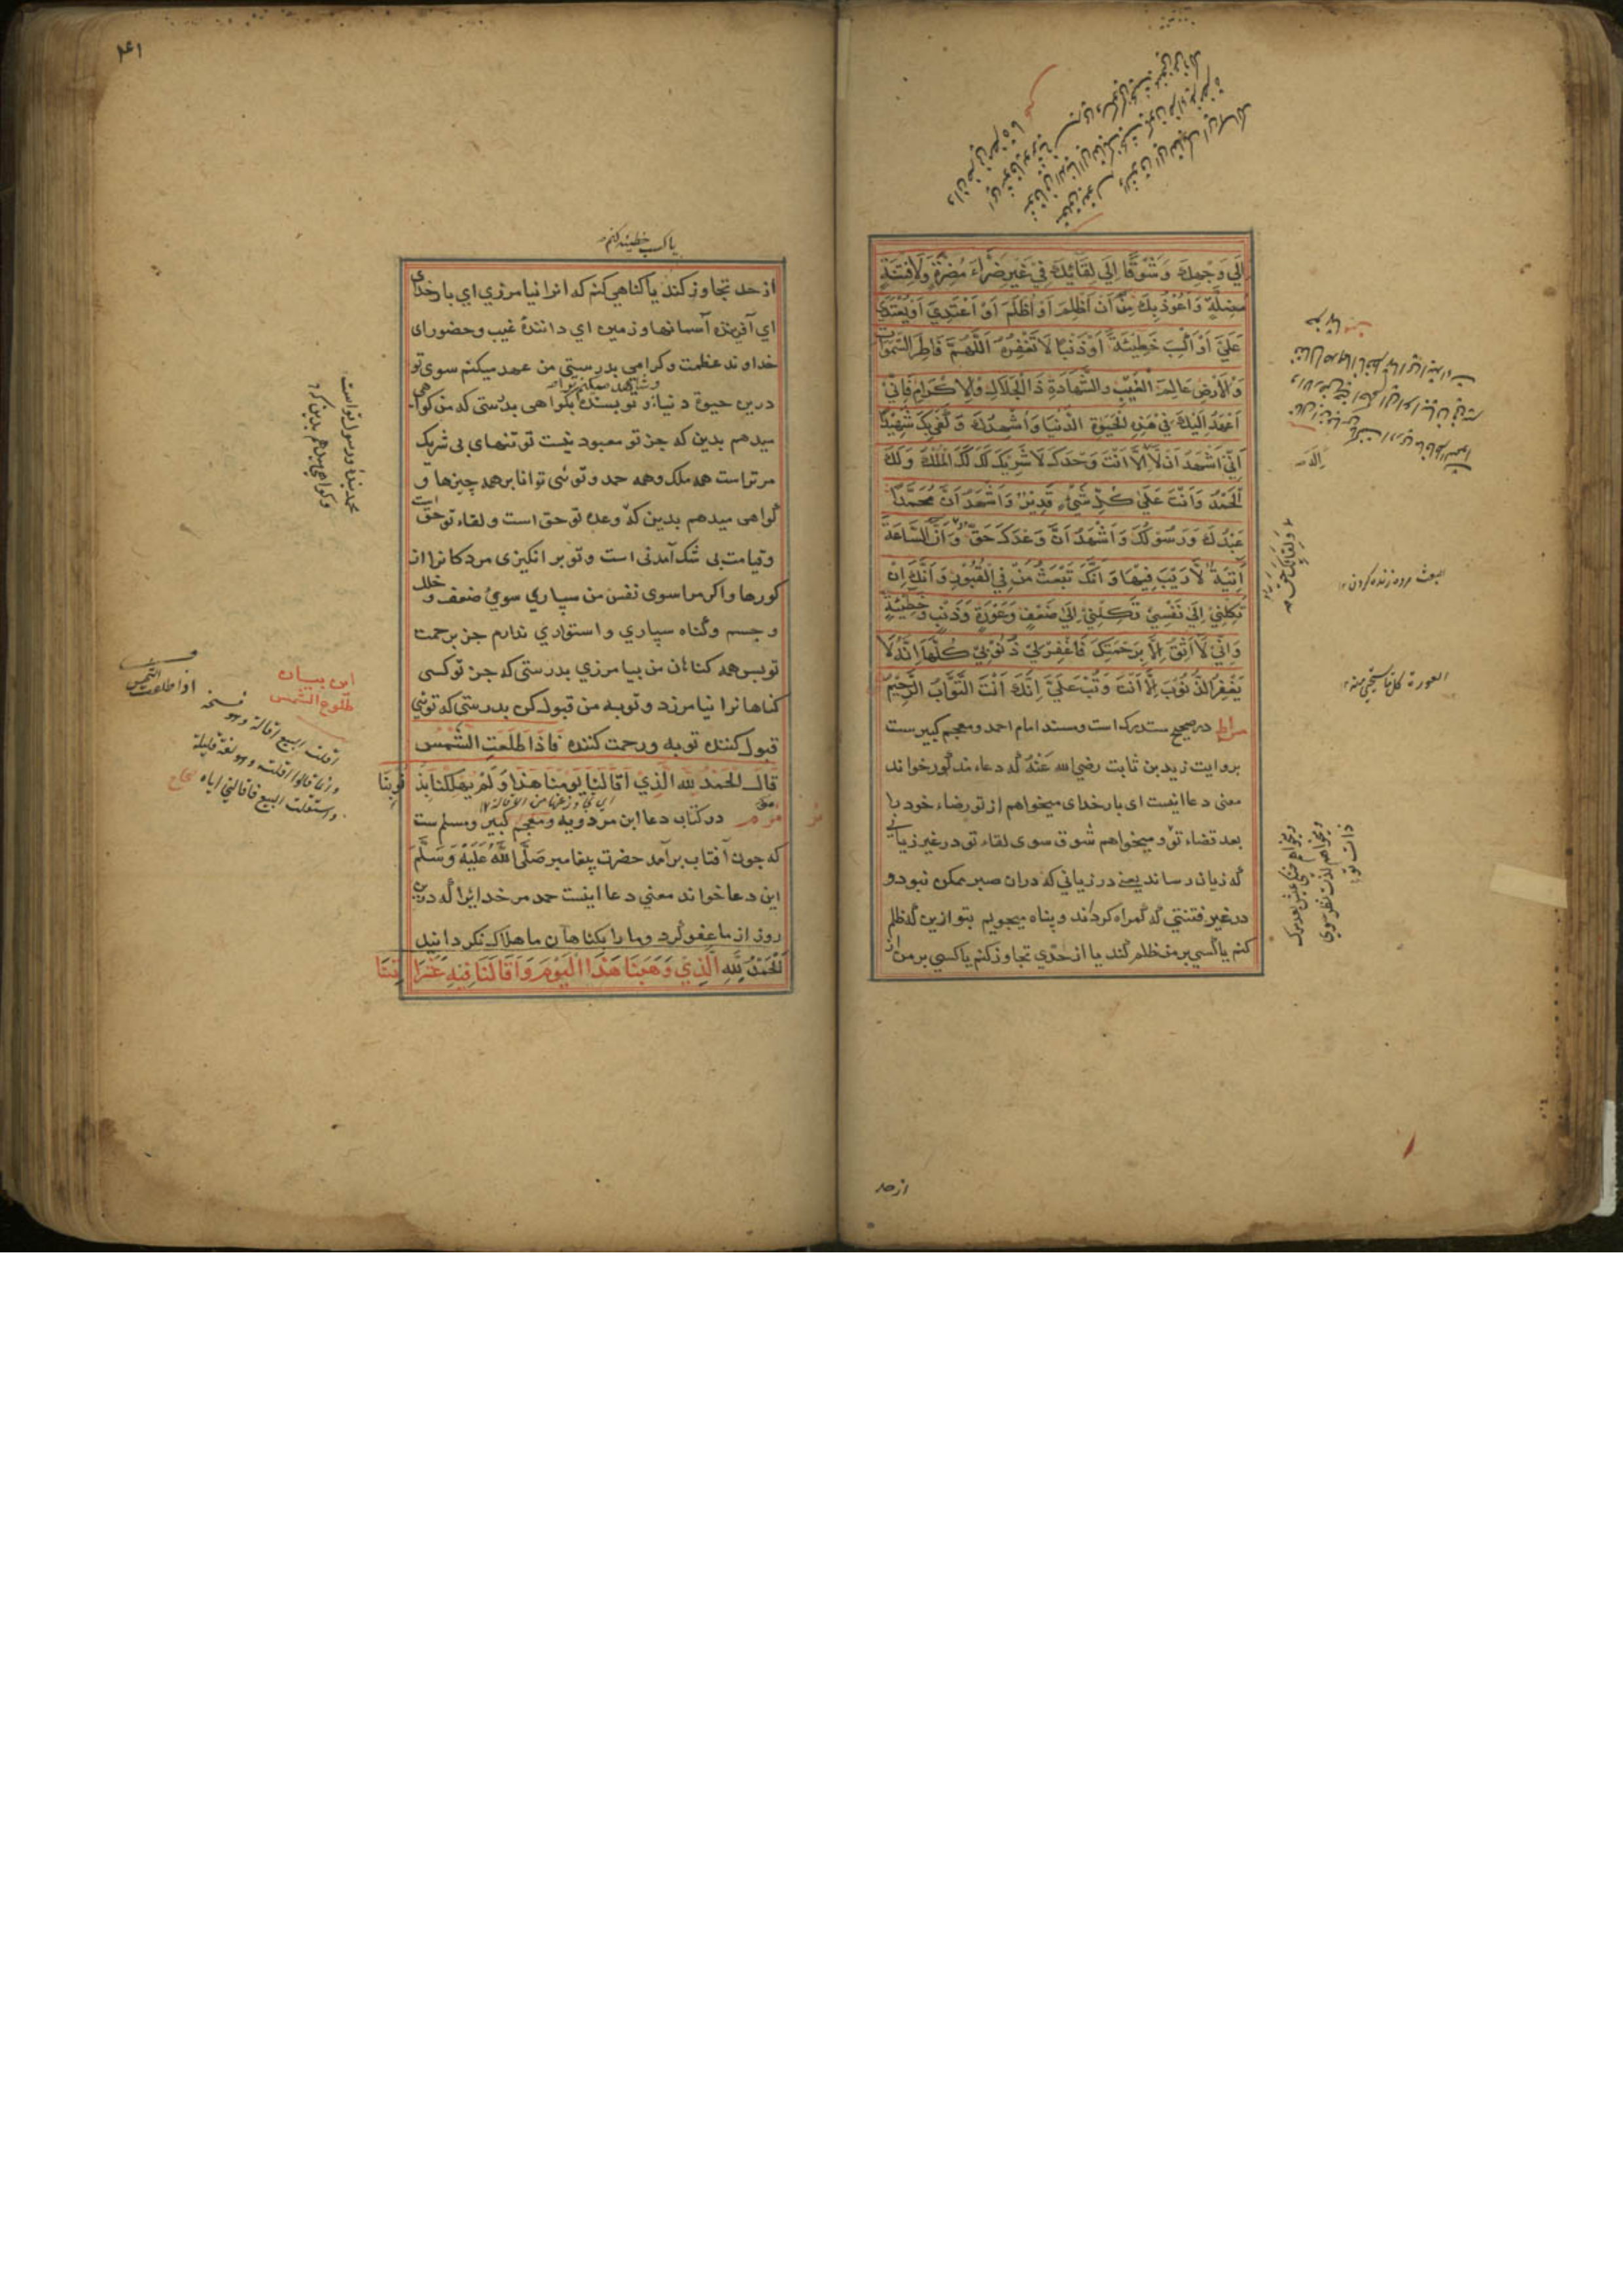 إِلَى وَجْهِكَ وَشَوْقًا إِلَى لِقَائِكَ فِي غَيْرِ ضَرَّاءَ مُضِرَّةٍ وَلَا فِتْنَةٍ
مُضِلَّةٍ وَأَعُوذُ بِكَ مِنْ أَنْ أَظْلِمَ أَوْ أُظْلَمَ أَوْ أَعْتَدِيَ أَوْ يُعْتَدَى
عَلَيَّ أَوْ أَكْسِبَ خَطِيئَةً أَوْ ذَنْبًا لَا تَغْفِرُهُ اَللَّهُمَّ فَاطِرَ السَّمَوَاتِ
وَالْأَرْضِ عَالِمَ الْغَيْبِ وَالشَّهَادَةِ ذَا الْجَلَالِ وَالْإِكْرَامِ فَإِنِّي
أَعْهَدُ إِلَيْكَ فِي هَذِهِ الْحَيَوةِ الدُّنْيَا وَأُشْهِدُكَ وَكَفَى بِكَ شَهِيدًا
أَنِّي أَشْهَدُ أَنْ لَا إِلَهَ إِلَّا أَنْتَ وَحْدَكَ لَا شَرِيكَ لَكَ لَكَ الْمُلْكُ وَلَكَ
الْحَمْدُ وَأَنْتَ عَلَى كُلِّ شَيْءٍ قَدِيرٌ وَأَشْهَدُ أَنَّ مُحَمَّدًا
عَبْدُكَ وَرَسُولُكَ وَأَشْهَدُ أَنَّ وَعْدَكَ حَقٌّ وَأَنَّ السَّاعَةَ
آتِيَةٌ لَا رَيْبَ فِيهَا وَأَنَّكَ تَبْعَثُ مَنْ فِي الْقُبُورِ وَأَنَّكَ إِنْ
تَكِلْنِي إِلَى نَفْسِي تَكِلْنِي إِلَى ضَعْفٍ وَعَوْرَةٍ وَذَنْبٍ وَخَطِيئَةٍ
وَإِنِّي لَا أَثِقُ إِلَّا بِرَحْمَتِكَ فَاغْفِرْ لِي ذُنُوبِي كُلَّهَا إِنَّهُ لَا
يَغْفِرُ الذُّنُوبَ إِلَّا أَنْتَ وَتُبْ عَلَيَّ إِنَّكَ أَنْتَ التَّوَّابُ الرَّحِيمُ
در صحیح مستدرک است ومسند امام احمد ومعجم کبیر ست
بروایت زید بن ثابت رضی الله عنه که دعاء مذکور خواند
معنی دعا اینست ای بار خدای میخواهم از تو رضاء خود با
بعد قضاء تو و میخواهم شوق سوی لقاء تو در غیر زیانی
که زیان رساند یعنی در زیانی که دران صبر ممکن نبود و
در غیر فتنتی که گمراه گرداند و پناه میجویم بتو ازین که ظلم
کنم یا کسی بر من ظلم کند یا از حدی تجاوز کنم یا کسی بر من از
البعث مرده زنده کردن
ولقاءک حق
العورة کل ما یستحیی منه
از حد
۴۱
یا کسب خطیئه کنم
از حد تجاوز کند یا گناهی کنم که انرا نیامرزی ای بار خدای
ای آفریننده آسمانها و زمین ای داننده غیب وحضور ای
خداوند عظمت و کرامی بدرستی من عهد میکنم سوی تو
درین حیوة دنیا و تو بسنده بگواهی بدرستی که من گواهی
میدهم بدین که جز تو معبود نیست تو تنهای بی شریک
مر تراست همه ملک وهمه حمد و توئی توانا بر همه چیزها و
گواهی میدهم بدین که وعده تو حق است و لقاء تو حق است
وقیامت بی شک آمدنی است و تو بر انگیزی مردگانرا از
گورها و اگر مرا سوی نفس من سپاری سوی ضعف و خلل
و جسم وگناه سپاری و استواری ندارم جز برحمت
تو پس همه گناهان من بیامرزی بدرستی که جز تو کسی
گناهانرا نیامرزد و توبه من قبول کن بدرستی که توئی
قبول کننده توبه و رحمت کننده فَإِذَا طَلَعَتِ الشَّمْسُ
قَالَ الْحَمْدُ لِلهِ الَّذِي أَقَالَنَا يَوْمَنَا هَذَا وَلَمْ يُهْلِكْنَا بِذُنُوبِنَا
مو مر در کتاب دعا ابن مردویه ومعجم کبیر ومسلم ست
که چون آفتاب برآمد حضرت پیغامبر صَلَّى اللهُ عَلَيْهِ وَسَلَّمَ
این دعا خواند معنی دعا اینست حمد مر خدایرا که درین
روز از ما عفو کرد وما را بگناهان ما هلاک نگردانید
اَلْحَمْدُ لِلهِ الَّذِي وَهَبَنَا هَذَا الْيَوْمَ وَأَقَالَنَا فِيهِ عَثَرَاتِنَا
محمد بنده ورسول تو است
وگواهی میدهم بدین که
این بیان
طلوع الشمس
اذا طلعت الشمس
اقلت البیع اقالة وهو فسخه
وربما قالوا اقلته وهو لغة قلیلة
واستقلت البیع فاقالنی ایاه